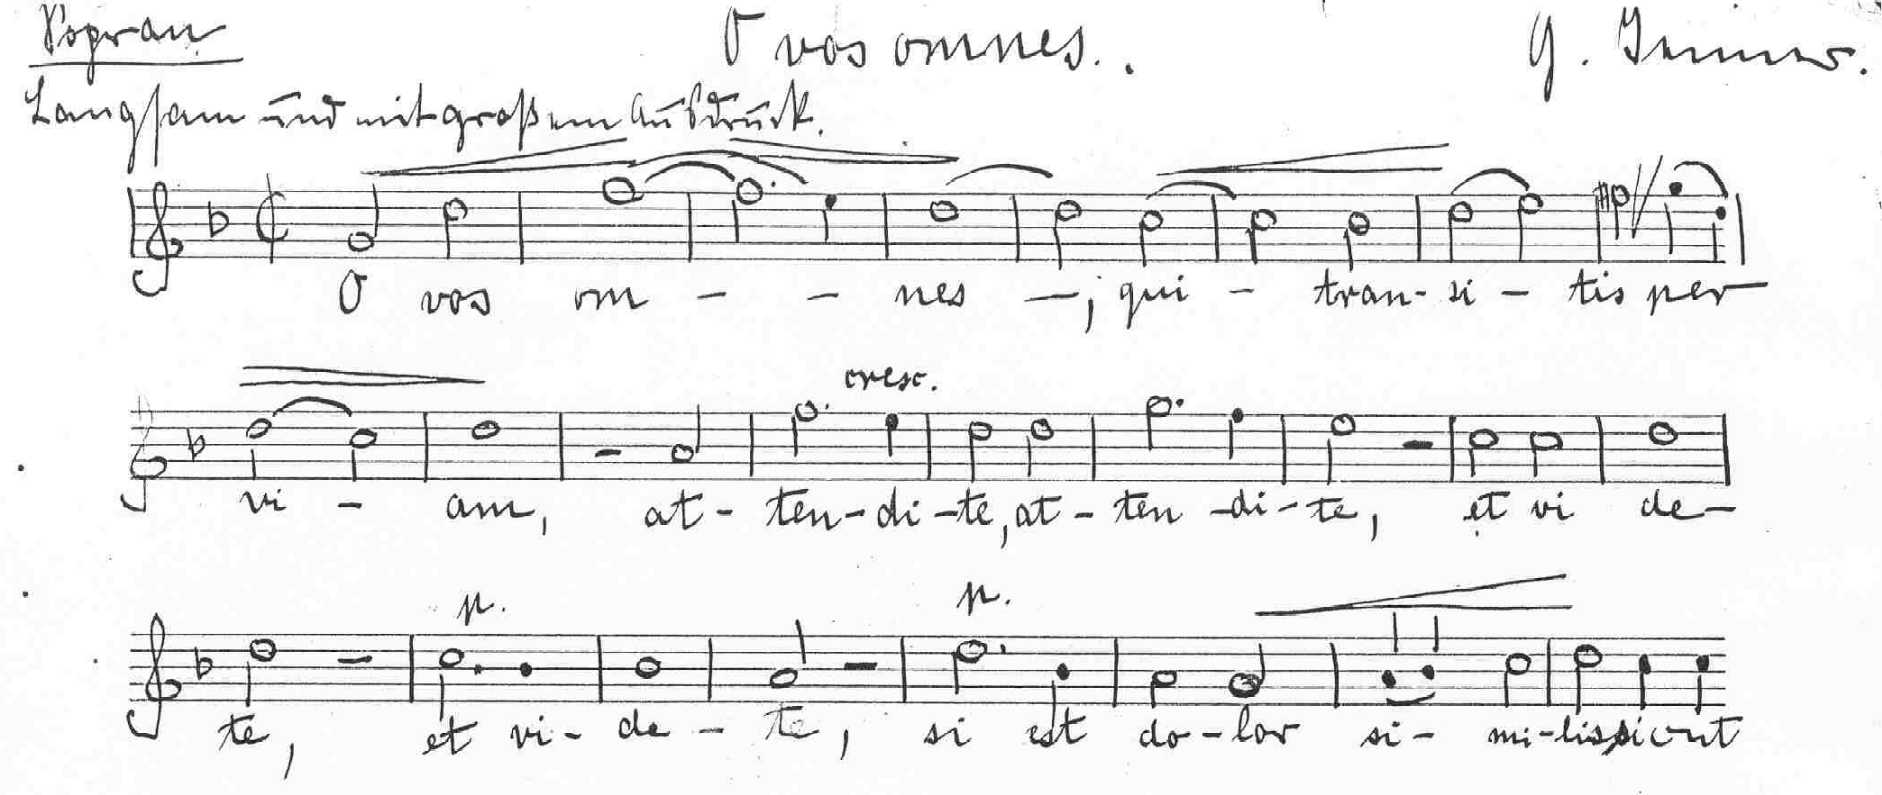 Sopran
O vos omnes.
G. Jenner.
Langsam und mit großem Ausdruck.
O vos om - - nes -, qui - tran-si - tis per
cresc.
vi - am, at - ten-di-te, at - ten-di-te, et vi de-
p. p.
te, et vi-de-te, si est do-lor si-mi-lis sicut